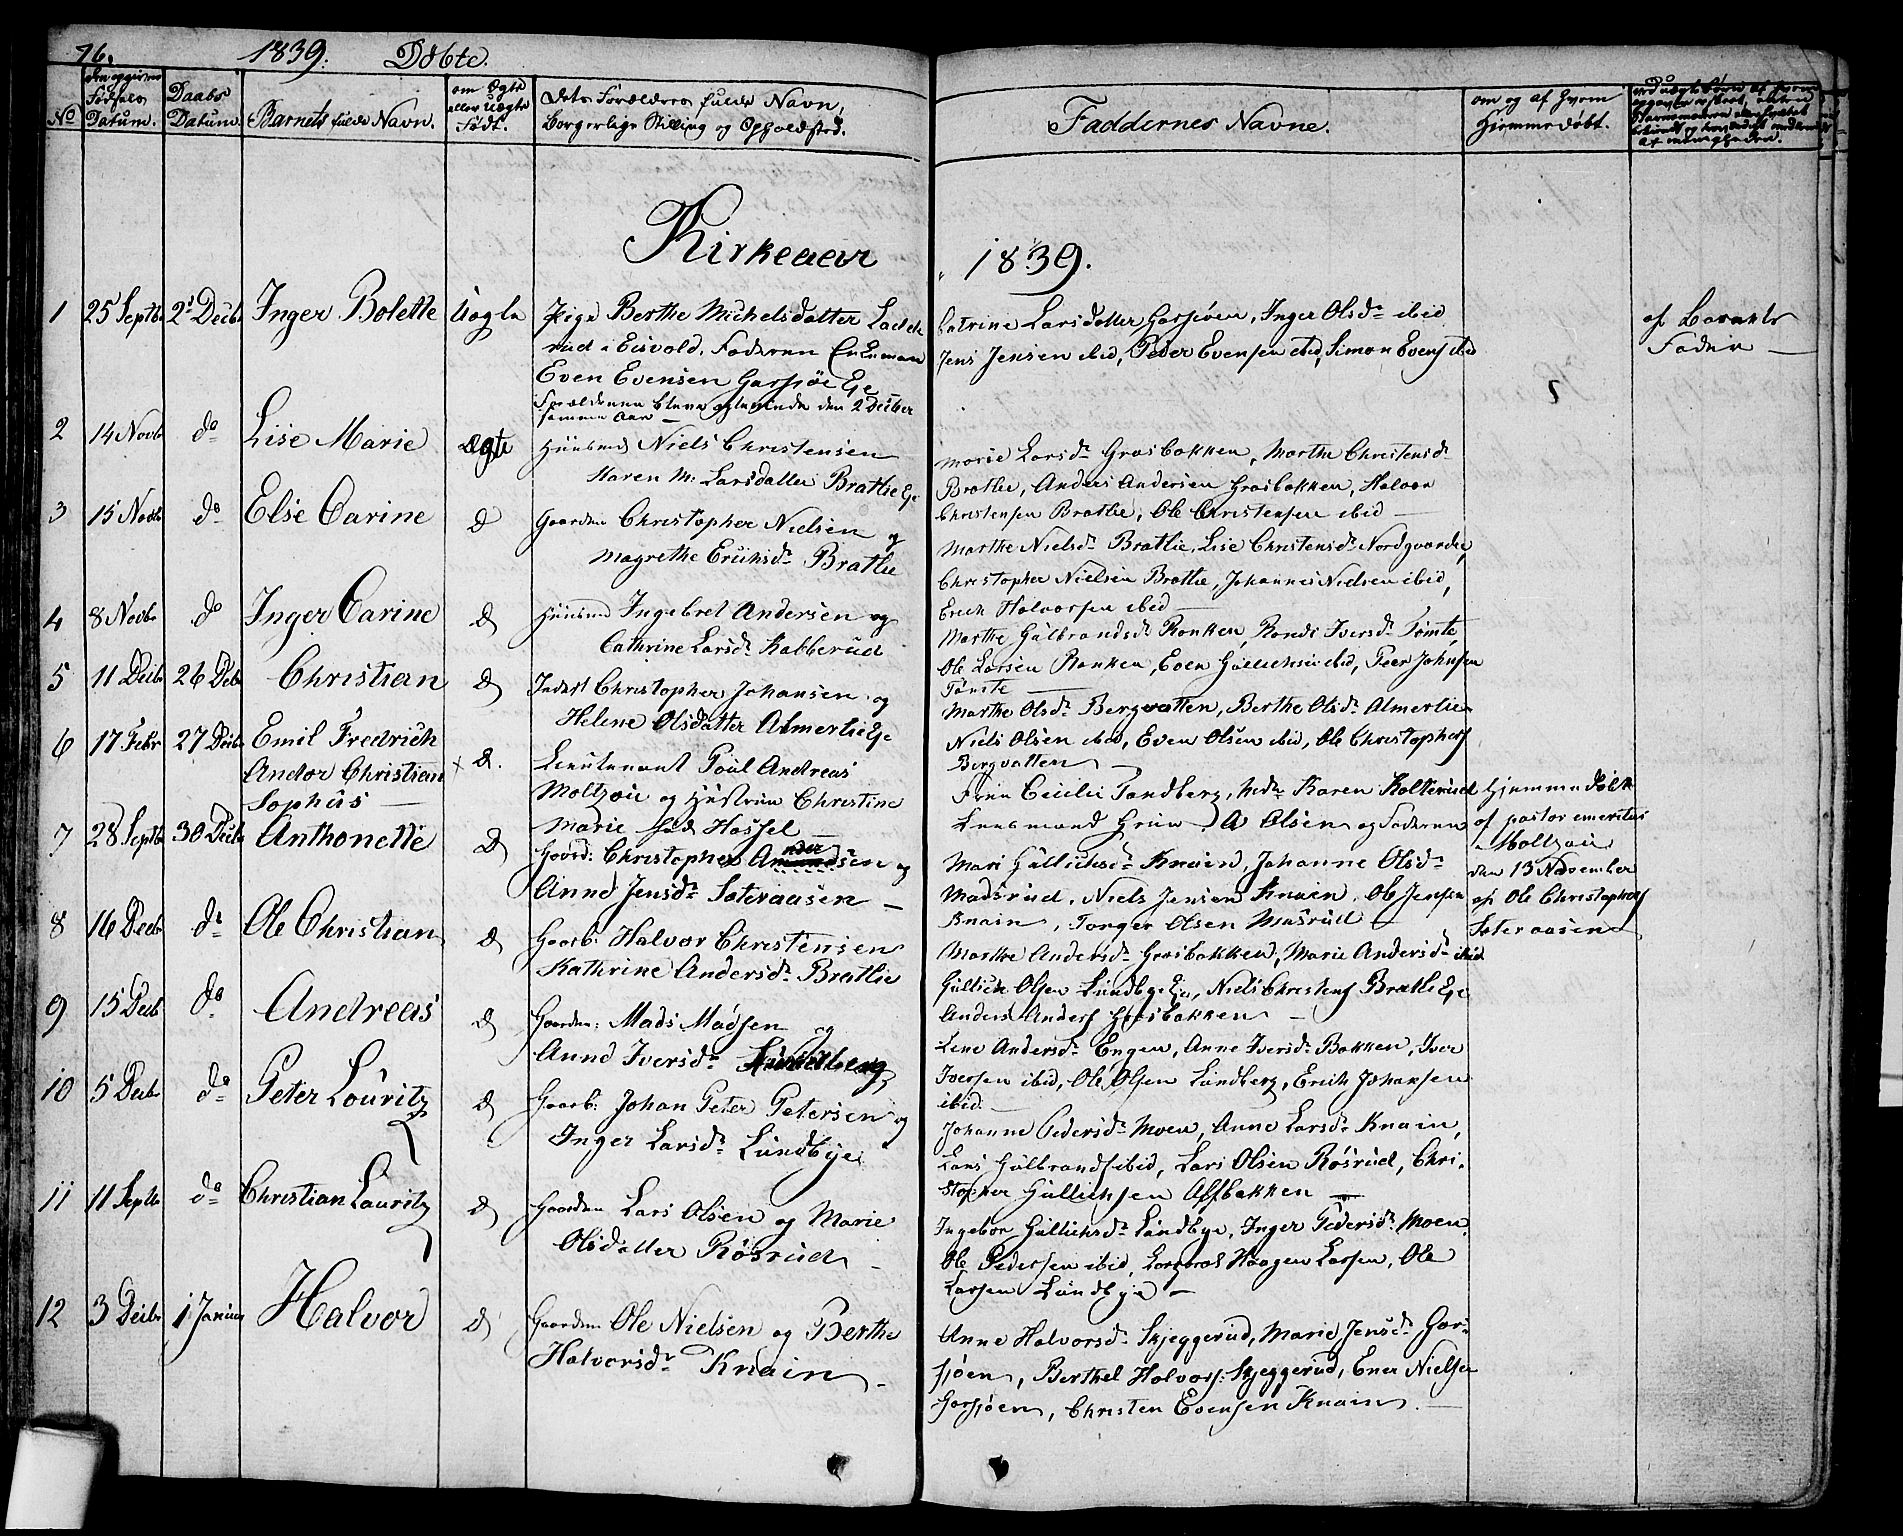 76. 1839. Døbte.
No
den opgivne Fødsels Datum.
Daabs Datum.
Barnets fulde Navn.
om Ægte eller Uægte Født.
dets Forældres fulde Navn, Borgerlige Stilling og Opholdsted.
Faddernes Navne.
om og af hvem Hjemmedøbt.
Kirkeaar 1839.
1 25 Septbr 2d Decbr Inger Bolette Uægte
Pige Berthe Michelsdatter
rud i Eisvold. Faderen Enkemand
Even Evensen Garsjøe Eje
Forældrene bleve ægteviede den 2 Decber
samme Aar
Catrine Larsdatter Garsjøen, Inger Olsdr ibid
Jens Jensen ibid, Peder Evensen ibid, Simon Evens ibid
af Barnets
Fader
2 14 Novb do Lise Marie Ægte
Huusmd Niels Christensen
Karen M: Larsdatter Bratlie Eje
Marie Larsdr Græsbakken, Marthe Christensdr
Bratlie, Anders Andersen Græsbakken, Halvor
Christensen Bratlie, Ole Christensen ibid
3 15 Novb do Else Carine do
Gaardm Christopher Nielsen og
Magrethe Erichsdr Bratlie
Marthe Nielsdr Bratlie, Lise Christensdr Nordgaarden,
Christopher Nielsen Bratlie, Johannes Nielsen ibid,
Erich Halvorsen ibid
4 8 Novbr do Inger Carine do
Huusmd Ingebret Andersen og
Cathrine Larsdr Kabberud
Marthe Gulbrandsdr Ronken, Rondi Iversdr Tømte,
Ole Larsen Ronken, Even Gullichsen ibid, Peer Johnsen
Tømte
5 11 Decbr 26 Decbr Christian do
Inderst Christopher Johansen og
Helene Olsdatter Almerlie Eje
Marthe Olsdr Bergvatten, Berthe Olsdr Almerlie
Niels Olsen ibid, Even Olsen ibid, Ole Christophers
Bergvatten
6 17 Febr 27 Decbr Emil Fredrich
Andor Christian
Sophus
+ do.
Lieutenant Poul Andreas
Moltzau og Hustrue Christine
Marie fød Hassel
Frue Cecilie Tandberg, Madm Karen Kolterud
Lensmand Gruer, A Olsen og Faderen
Hjemmedøbt
af pastor emeritus
Moltzau
7 28 Septbr 30 Decbr Anthonette do
Gaard: Christopher Andersen og
Anne Jensdr Sæteraasen
Mari Gullichsdr Knain, Johanne Olsdr
Madsrud, Niels Jensen Knain, Ole Jensen
Knain, Torger Olsen Masrud
den 13 November
af Ole Christophers
Sæteraasen
8 16 Decbr do Ole Christian do
Gaarb: Halvor Christensen
Kathrine Andersdr Bratlie
Marthe Andersdr Græsbakken, Marie Andersdr ibid
Gullich Olsen Lundbye Eje, Niels Christens Bratlie Eje
Anders Anders Græsbakken
9 15 Decb do Andreas do
Gaardm: Mads Madsen og
Anne Iversdr
Lene Andersdr Engen, Anne Iversdr Bakken, Iver
Iversen ibid, Ole Olsen Lundberg, Erich Johansen
ibid
10 5 Decbr do Peter Louritz do
Gaarb: Johan Peter Petersen og
Inger Larsdr Lundbye
Johanne Pedersdr Moen, Anne Larsdr Knain,
Lars Gulbrands ibid, Lars Olsen Røsrud, Chri-
stopher Gullichsen Assbakken
11 11 Septbr do Christian Lauritz do
Gaardm Lars Olsen og Marie
Olsdatter Røsrud
Ingebor Gullichsdr Lundbye, Inger Pedersdr Moen,
Ole Pedersen ibid, Corporal Haagen Larsen, Ole
Larsen Lundbye
12 3 Decbr 1 Januar Halvor do
Gaardm Ole Nielsen og Berthe
Halvorsdr Knain
Anne Halvorsdr Skjeggerud, Marie Jensdr Gar-
sjøen, Berthel Halvors: Skjeggerud, Ener Nielsen
Garsjøen, Christen Evensen Knain